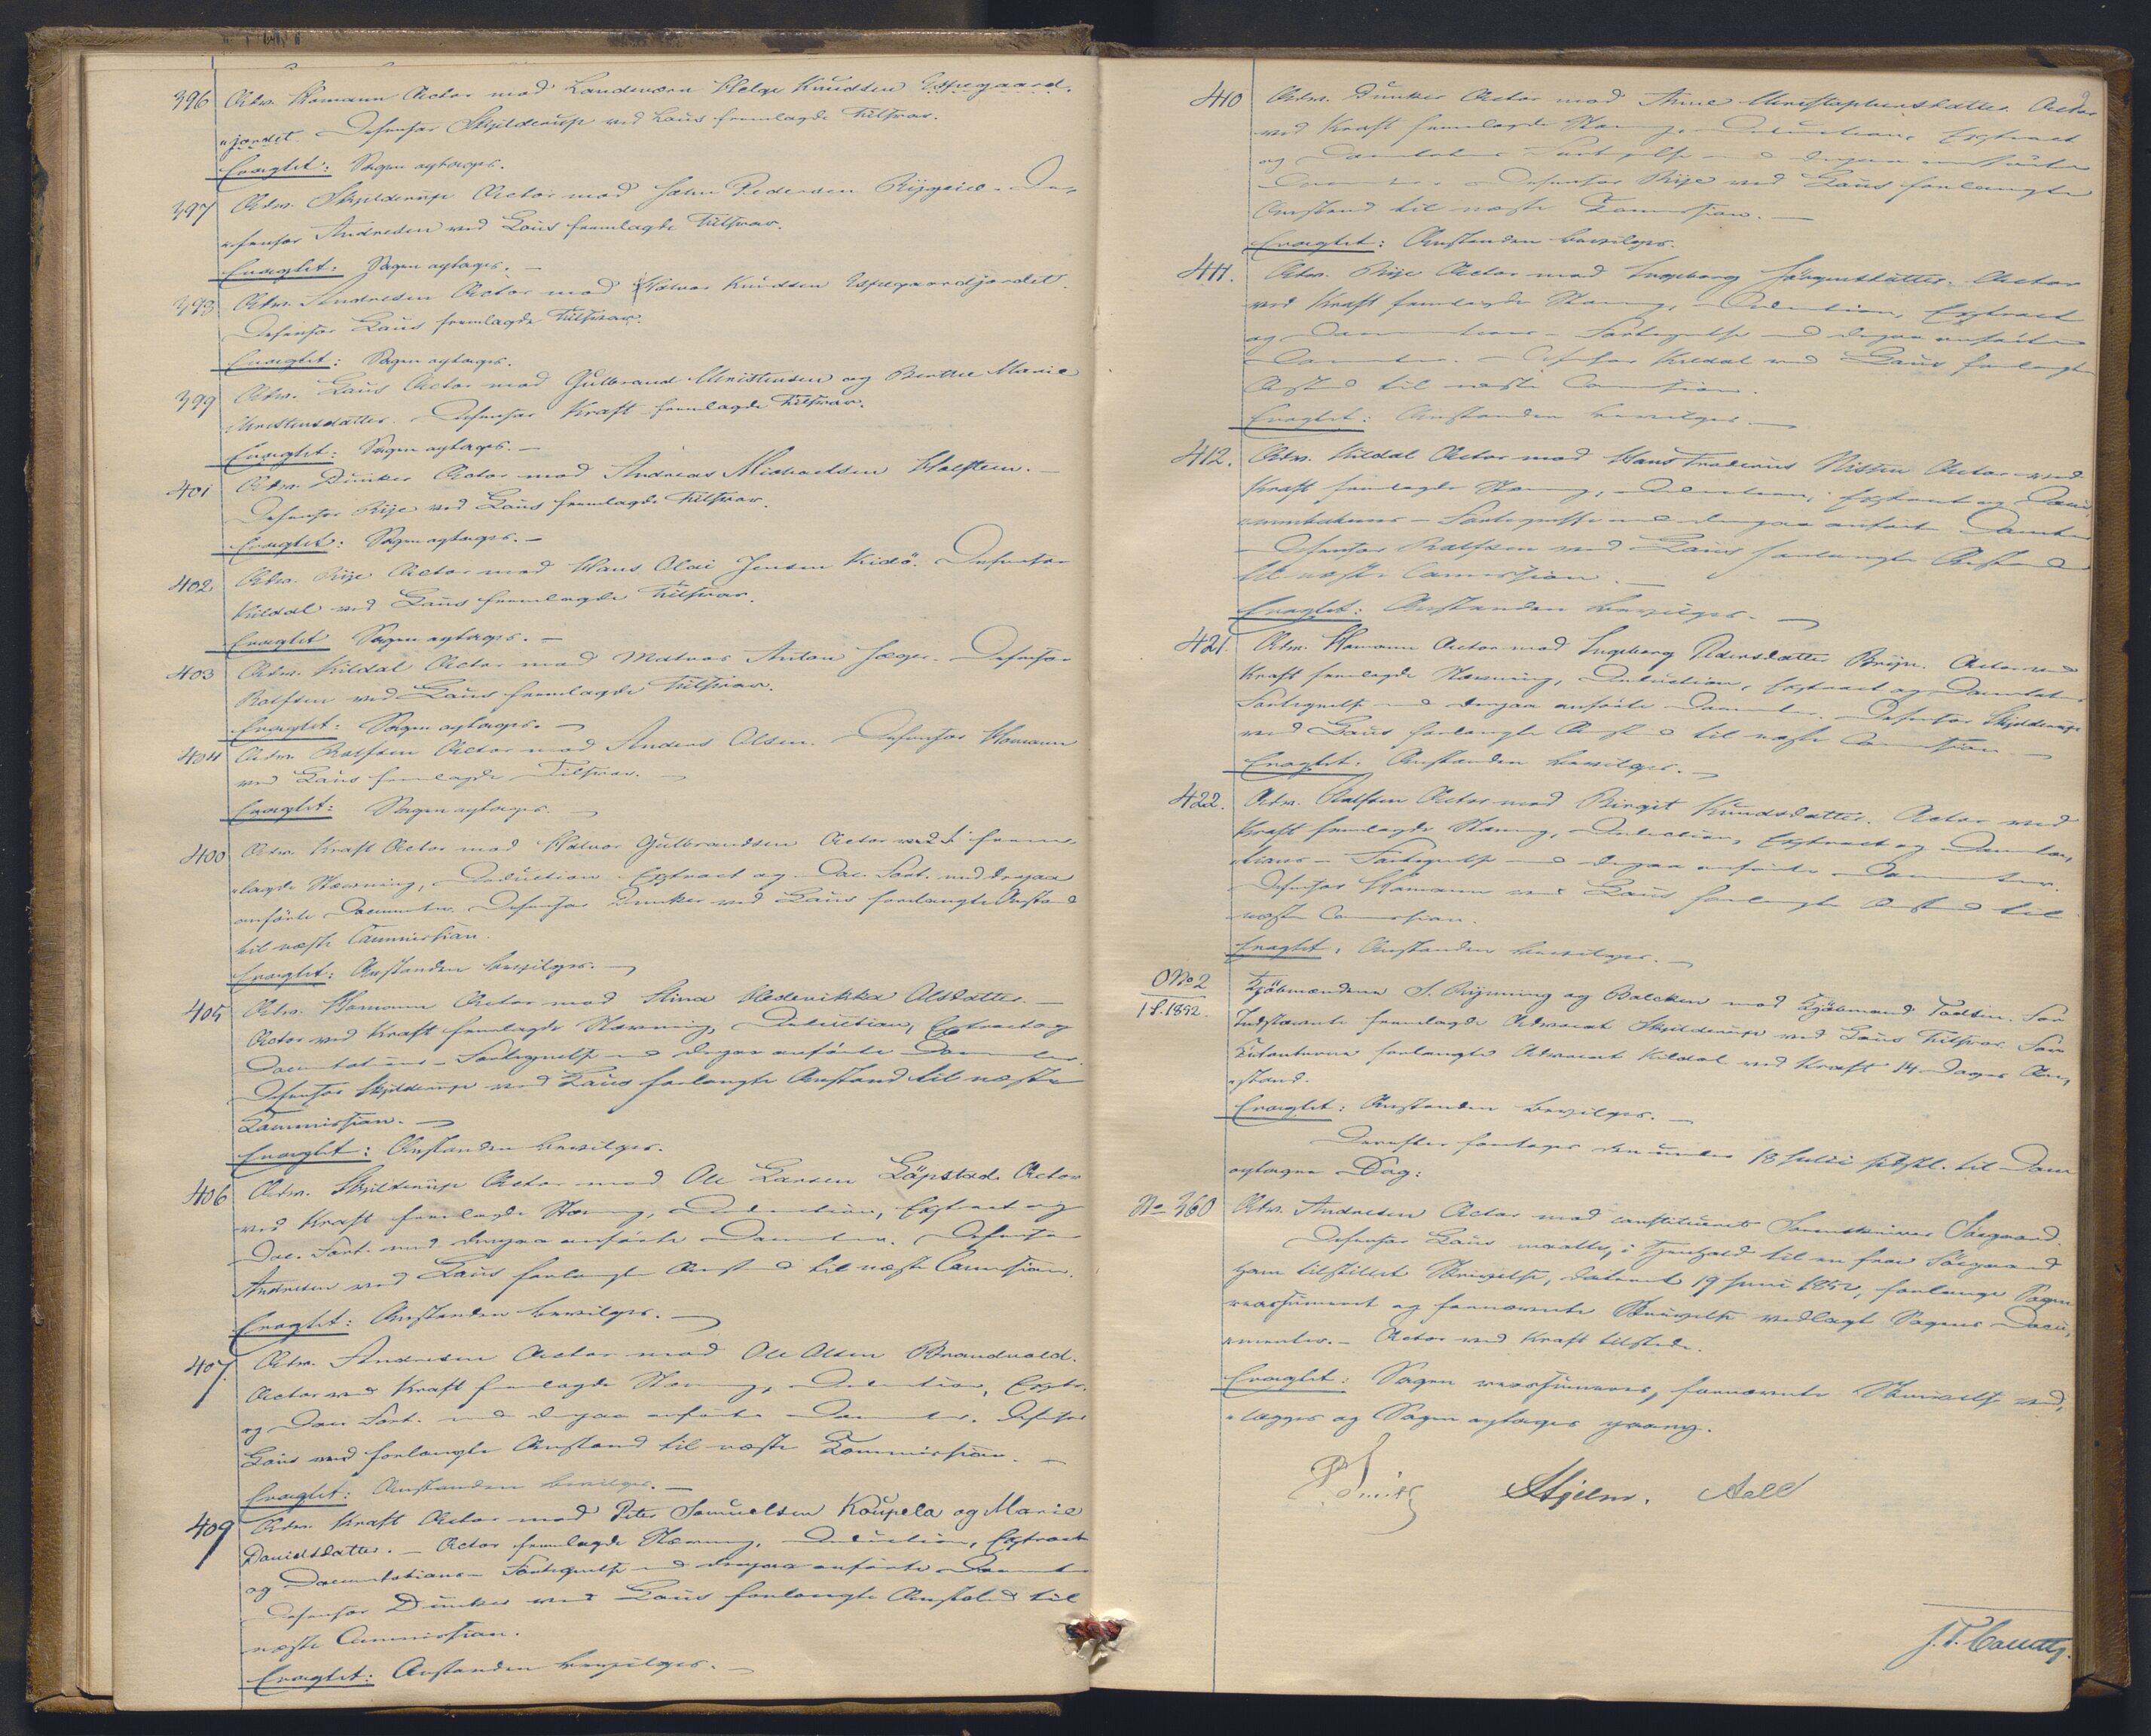 396 Adv. Homann Actor mod Landværn Helge Knudsen Espegaard-
„jordet. Defensor Skjelderup ved Laus fremlagde Tilsvar.
Eragtet: Sagen optages.
397 Adv. Skjelderup Actor mod Peder Pedersen De-
„fensor Andresen ved Laus fremlagde Tilsvar.
Eragtet: Sagen optages. –
398 Adv. Andresen Actor mod Halvor Knudsen Espegaardjordet.
Defensor Laus fremlagde Tilsvar.
Eragtet: Sagen optages.
399 Adv. Laus Actor mod Gulbrand Christensen og Berthe Marie
Christensdatter. Defensor Kraft fremlagde Tilsvar.
Eragtet: Sagen optages. –
401 Adv. Dunker Actor mod Andreas Michaelsen Holstein. –
Defensor Rije ved Laus fremlagde Tilsvar.
Eragtet: Sagen optages. –
402 Adv. Rije Actor mod Hans Olai Jensen Kidö. Defensor
Kildal ved Laus fremlagde Tilsvar.
Eragtet Sagen optages. –
403 Adv. Kildal Actor mod Mathias Anton Jæger. Defensor
Rolfsen ved Laus fremlagde Tilsvar.
Eragtet: Sagen optages. –
404 Adv. Rolfsen Actor mod Anders Olsen. Defensor Homann
ved Laus fremlagde Tilsvar. –
Eragtet: Sagen optages. –
400 Adv. Kraft Actor mod Halvor Gulbrandsen Actor frem-
„lagde Stævning, Deduction Extract og Doc. Fort. med derpaa
anførte Documenter. Defensor Dunker ved Laus forlangte Anstand
til næste Commission.
Eragtet: Anstanden bevilges. –
405 Adv. Homann Actor mod Stina Hedevikka Olsdatter. –
Actor ved Kraft fremlagde Stævning, Deduction, Extract og
Documentations-Fortegnelse med derpaa anførte Documenter.
Defensor Skjelderup ved Laus forlangte Anstand til næste
Commission. –
Eragtet: Anstanden bevilges.
406 Adv. Skjelderup Actor mod Ole Larsen Løpstad. Actor
ved Kraft fremlagde Stævning, Deduction, Extract og
Doc. Fort. med derpaa anførte Documenter. Defensor
Andresen ved Laus forlangte Anstand til næste Commission.
Eragtet: Anstanden bevilges. –
407. Adv. Andresen Actor mod Ole Olsen Brandvold.
Actor ved Kraft fremlagde Stævning, Deduction, Extr.
og Doc. Fort. med derpaa anførte Documenter. Defensor
Laus ved forlangte Anstand til næste Commission. –
Eragtet: Anstanden bevilges. –
409 Adv. Kraft Actor mod Peter Samuelsen Koupela og Marie
Davidsdatter. – Actor fremlagde Stævning, Deduction, Extract
og Documentations-Fortegnelse med derpaa anførte Documenter
Defensor Dunker ved Laus forlangte Anstand til
næste Commission.
Eragtet: Anstanden bevilges. –
410 Adv. Dunker Actor mod Anne Christophersdatter. Actor
ved Kraft fremlagde Stævning, Deduction, Extract
og Documentations Fortegnelse med derpaa anførte
Documenter. Defensor Rije ved Laus forlangte
Anstand til næste Commission. –
Eragtet: Anstanden bevilges.
411. Adv. Rije Actor mod Ingeborg Jørgensdatter. Actor
ved Kraft fremlagde Stævning, Deduction, Extract
og Documentations-Fortegnelse med derpaa anførte
Documenter. Defensor Kildal ved Laus forlangte
Anstand til næste Commission.
Eragtet: Anstanden bevilges. –
412. Adv. Kildal Actor mod Hans Frederius Nilsen Actor ved
Kraft fremlagde Stævning, Deduction, Extract og Docu-
„mentations-Fortegnelse med derpaa anførte Documenter
Defensor Rolfsen ved Laus forlangte Anstand
til næste Commission. –
Eragtet: Anstanden bevilges. –
421. Adv. Homann Actor mod Ingeborg Pedersdatter Brye. Actor ved
Kraft fremlagde Stævning, Deduction, Extract og Documentat.
Fortegnelse med derpaa anførte Documenter. Defensor Skjelderup
ved Laus forlangte Anstand til næste Commission –
Eragtet. Anstanden bevilges. –
422. Adv. Rolfsen Actor mod Birgit Knudsdatter. Actor ved
Kraft fremlagde Stævning, Deduction, Extract og Documenta-
„tions-Fortegnelse med derpaa anførte Documenter.
Defensor Homann ved Laus forlangte Anstand til
næste Commission.
Eragtet, Anstanden bevilges. –
O No 2
1 S. 1852. Kjøbmændene S. og Balchen mod Kjøbmand Todsen. For
Indstævnte fremlagde Advocat Skjelderup ved Laus Tilsvar. For
Citanterne forlangte Advocat Kildal ved Kraft 14 Dages An-
„stand.
Eragtet: Anstanden bevilges. –
Derefter foretages den under 18 Juni sidstl. til Dom
optagne Sag:
No 360 Adv. Andresen Actor mod constitueret Sorenskriver Siegwardt.
Defensor Laus maatte, i Henhold til en fra Siegwardt
ham tilstillet Skrivelse, dateret 19 Juni 1852, forlange Sagen
reassumeret og fornævnte Skrivelse vedlagt Sagens Docu-
„menter. – Actor ved Kraft tilstede.
Eragtet: Sagen reassumeres, fornævnte Skrivelse ved-
„lægges og Sagen optages paany.
Hjelm. Aall